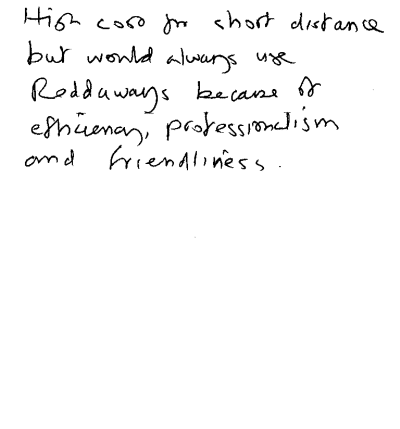 High cost for short distance
but would always use
Reddaways because of
efficiency, professionalism
and friendliness.